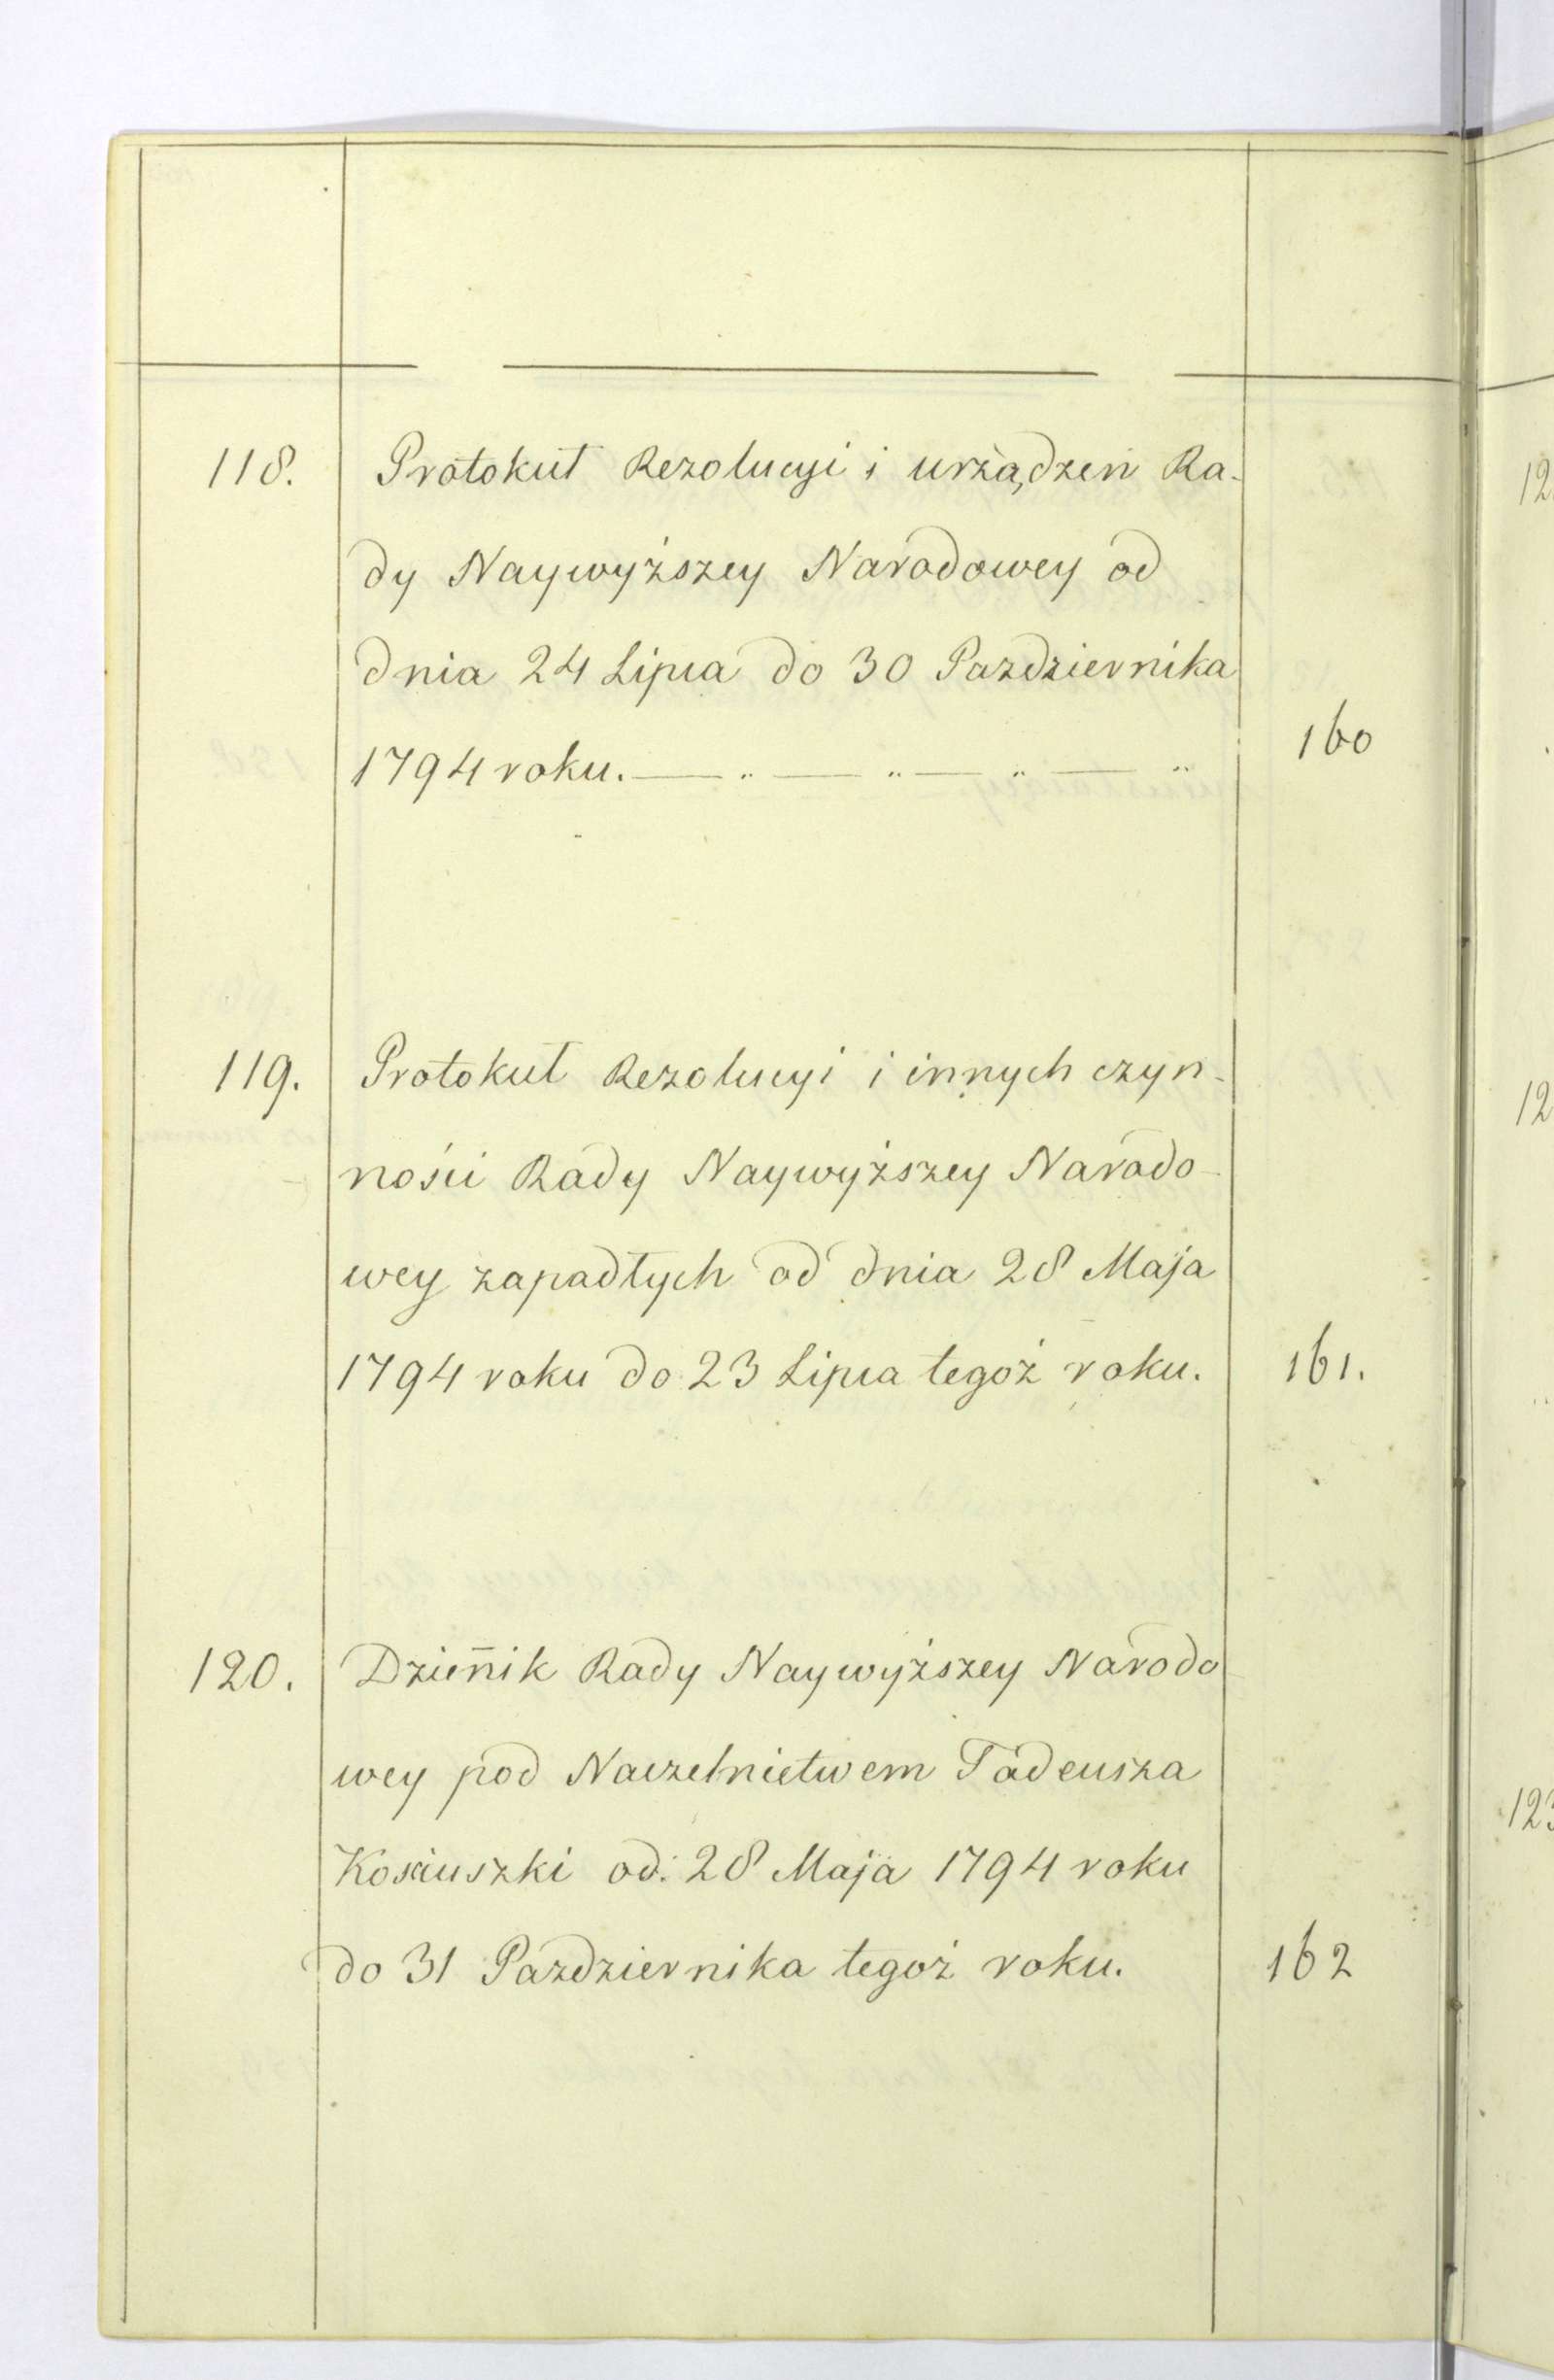 118. Protokuł Rezolucyi i urządzeń Ra-
dy Naywyższey Narodowey od
dnia 24 Lipca do 30 Pazdziernika
1794 roku. — „ — „ — „ — „ 160
119. Protokuł Rezolucyi i innych czyn-
ności Rady Naywyższey Narodo-
wey zapadłych od dnia 28 Maja
1794 roku do 23 Lipca tegoż roku. 161.
120. Dzien̄ik Rady Naywyższey Narodo
wey pod Naczelnictwem Tadeusza
Kosciuszki od. 28 Maja 1794 roku
do 31 Pazdziernika tegoż roku. 162
12
12
123